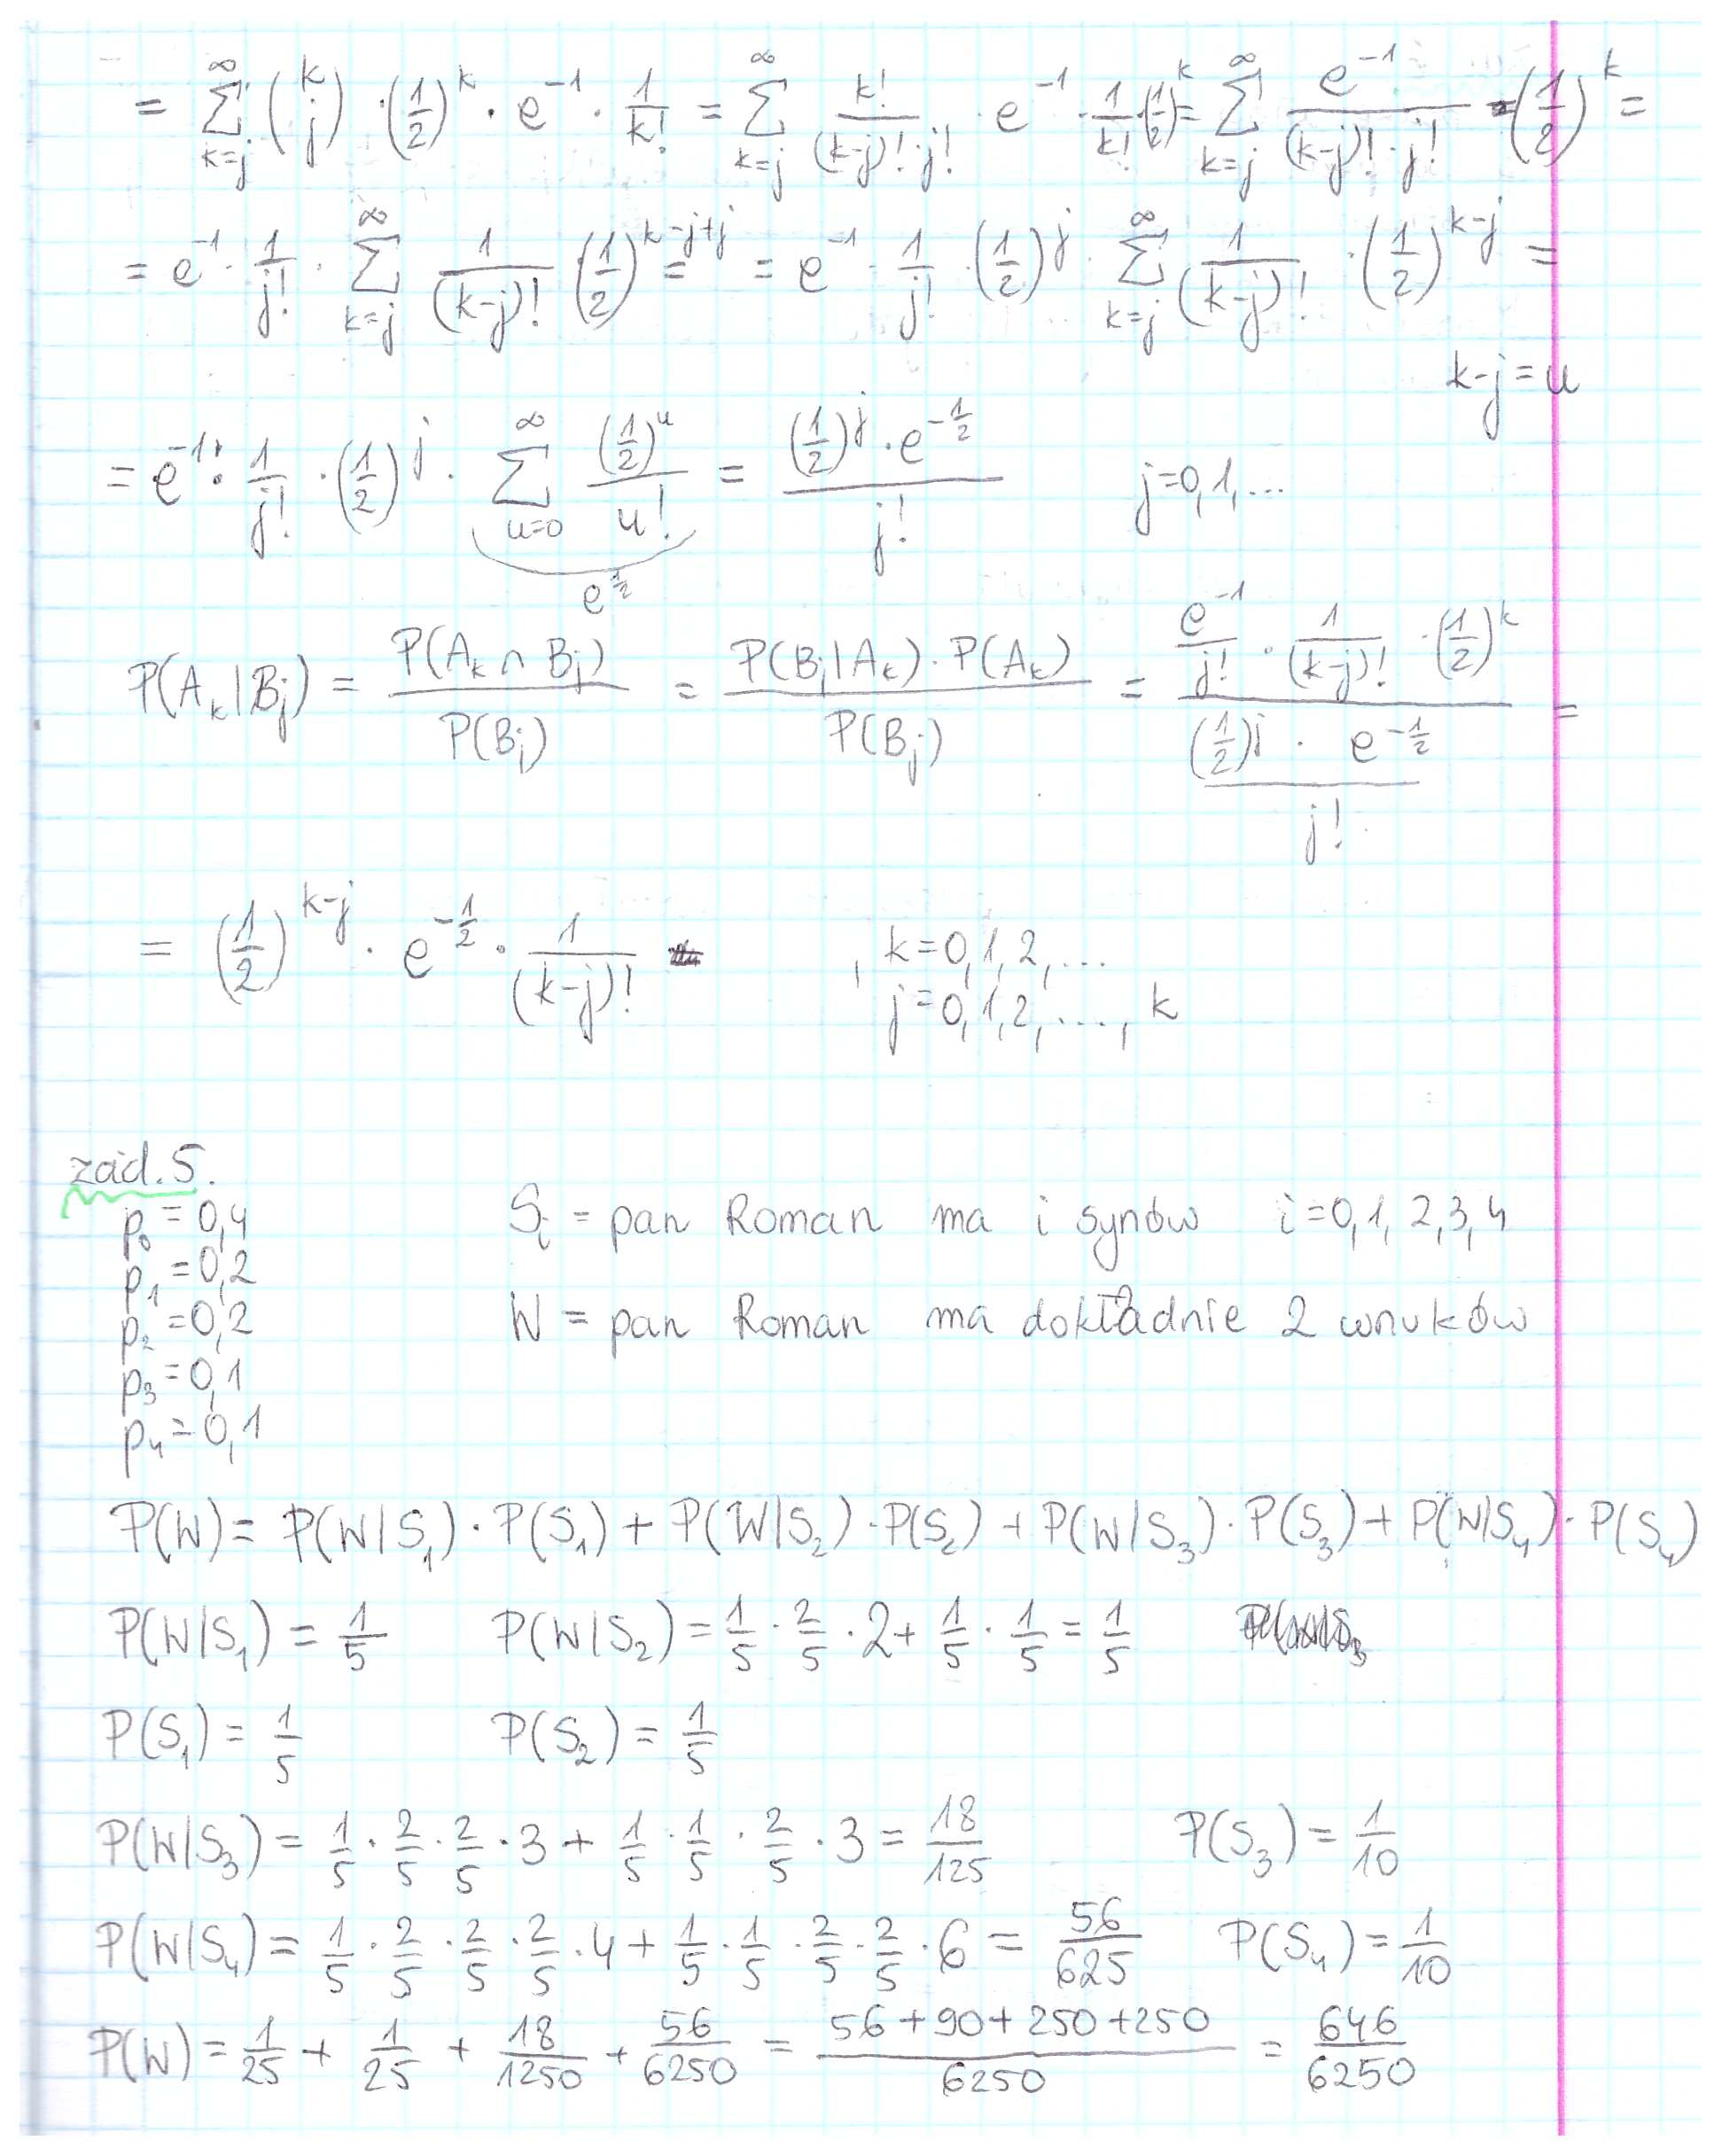 = ∑_{k=j}^{∞} (k j) · (1/2)^k · e^{-1} · 1/k! = ∑_{k=j}^{∞} k!/((k-j)!·j!) · e^{-1} · 1/k! · (1/2)^k = ∑_{k=j}^{∞} e^{-1}/((k-j)!·j!) · (1/2)^k =
= e^{-1} · 1/j! · ∑_{k=j}^{∞} 1/(k-j)! (1/2)^{k-j+j} = = e^{-1} · 1/j! · (1/2)^j · ∑_{k=j}^{∞} 1/(k-j)! · (1/2)^{k-j} =
k-j=u
= e^{-1} · 1/j! · (1/2)^j · ∑_{u=0}^{∞} (1/2)^u/u! = ((1/2)^j · e^{-1/2})/j! j=0,1,...
e^{1/2}
P(A_k|B_j) = P(A_k ∩ B_j)/P(B_j) = P(B_j|A_k)·P(A_k)/P(B_j) = (e^{-1}/j! · 1/(k-j)! · (1/2)^k)/((1/2)^j · e^{-1/2}/j!) =
= (1/2)^{k-j} · e^{-1/2} · 1/(k-j)! , k=0,1,2,...
j=0,1,2,...,k
zad.5.
p_0=0,4 S_i = pan Roman ma i synów i=0,1,2,3,4
p_1=0,2
p_2=0,2 W = pan Roman ma dokładnie 2 wnuków
p_3=0,1
p_4=0,1
P(W)= P(W|S_1)·P(S_1)+P(W|S_2)·P(S_2)+P(W|S_3)·P(S_3)+P(W|S_4)·P(S_4)
P(W|S_1)=1/5 P(W|S_2)=1/5·2/5·2+1/5·1/5=1/5
P(S_1)=1/5 P(S_2)=1/5
P(W|S_3)=1/5·2/5·2/5·3+1/5·1/5·2/5·3=18/125 P(S_3)=1/10
P(W|S_4)=1/5·2/5·2/5·2/5·4+1/5·1/5·2/5·2/5·6=56/625 P(S_4)=1/10
P(W)=1/25+1/25+18/1250+56/6250=(56+90+250+250)/6250=646/6250